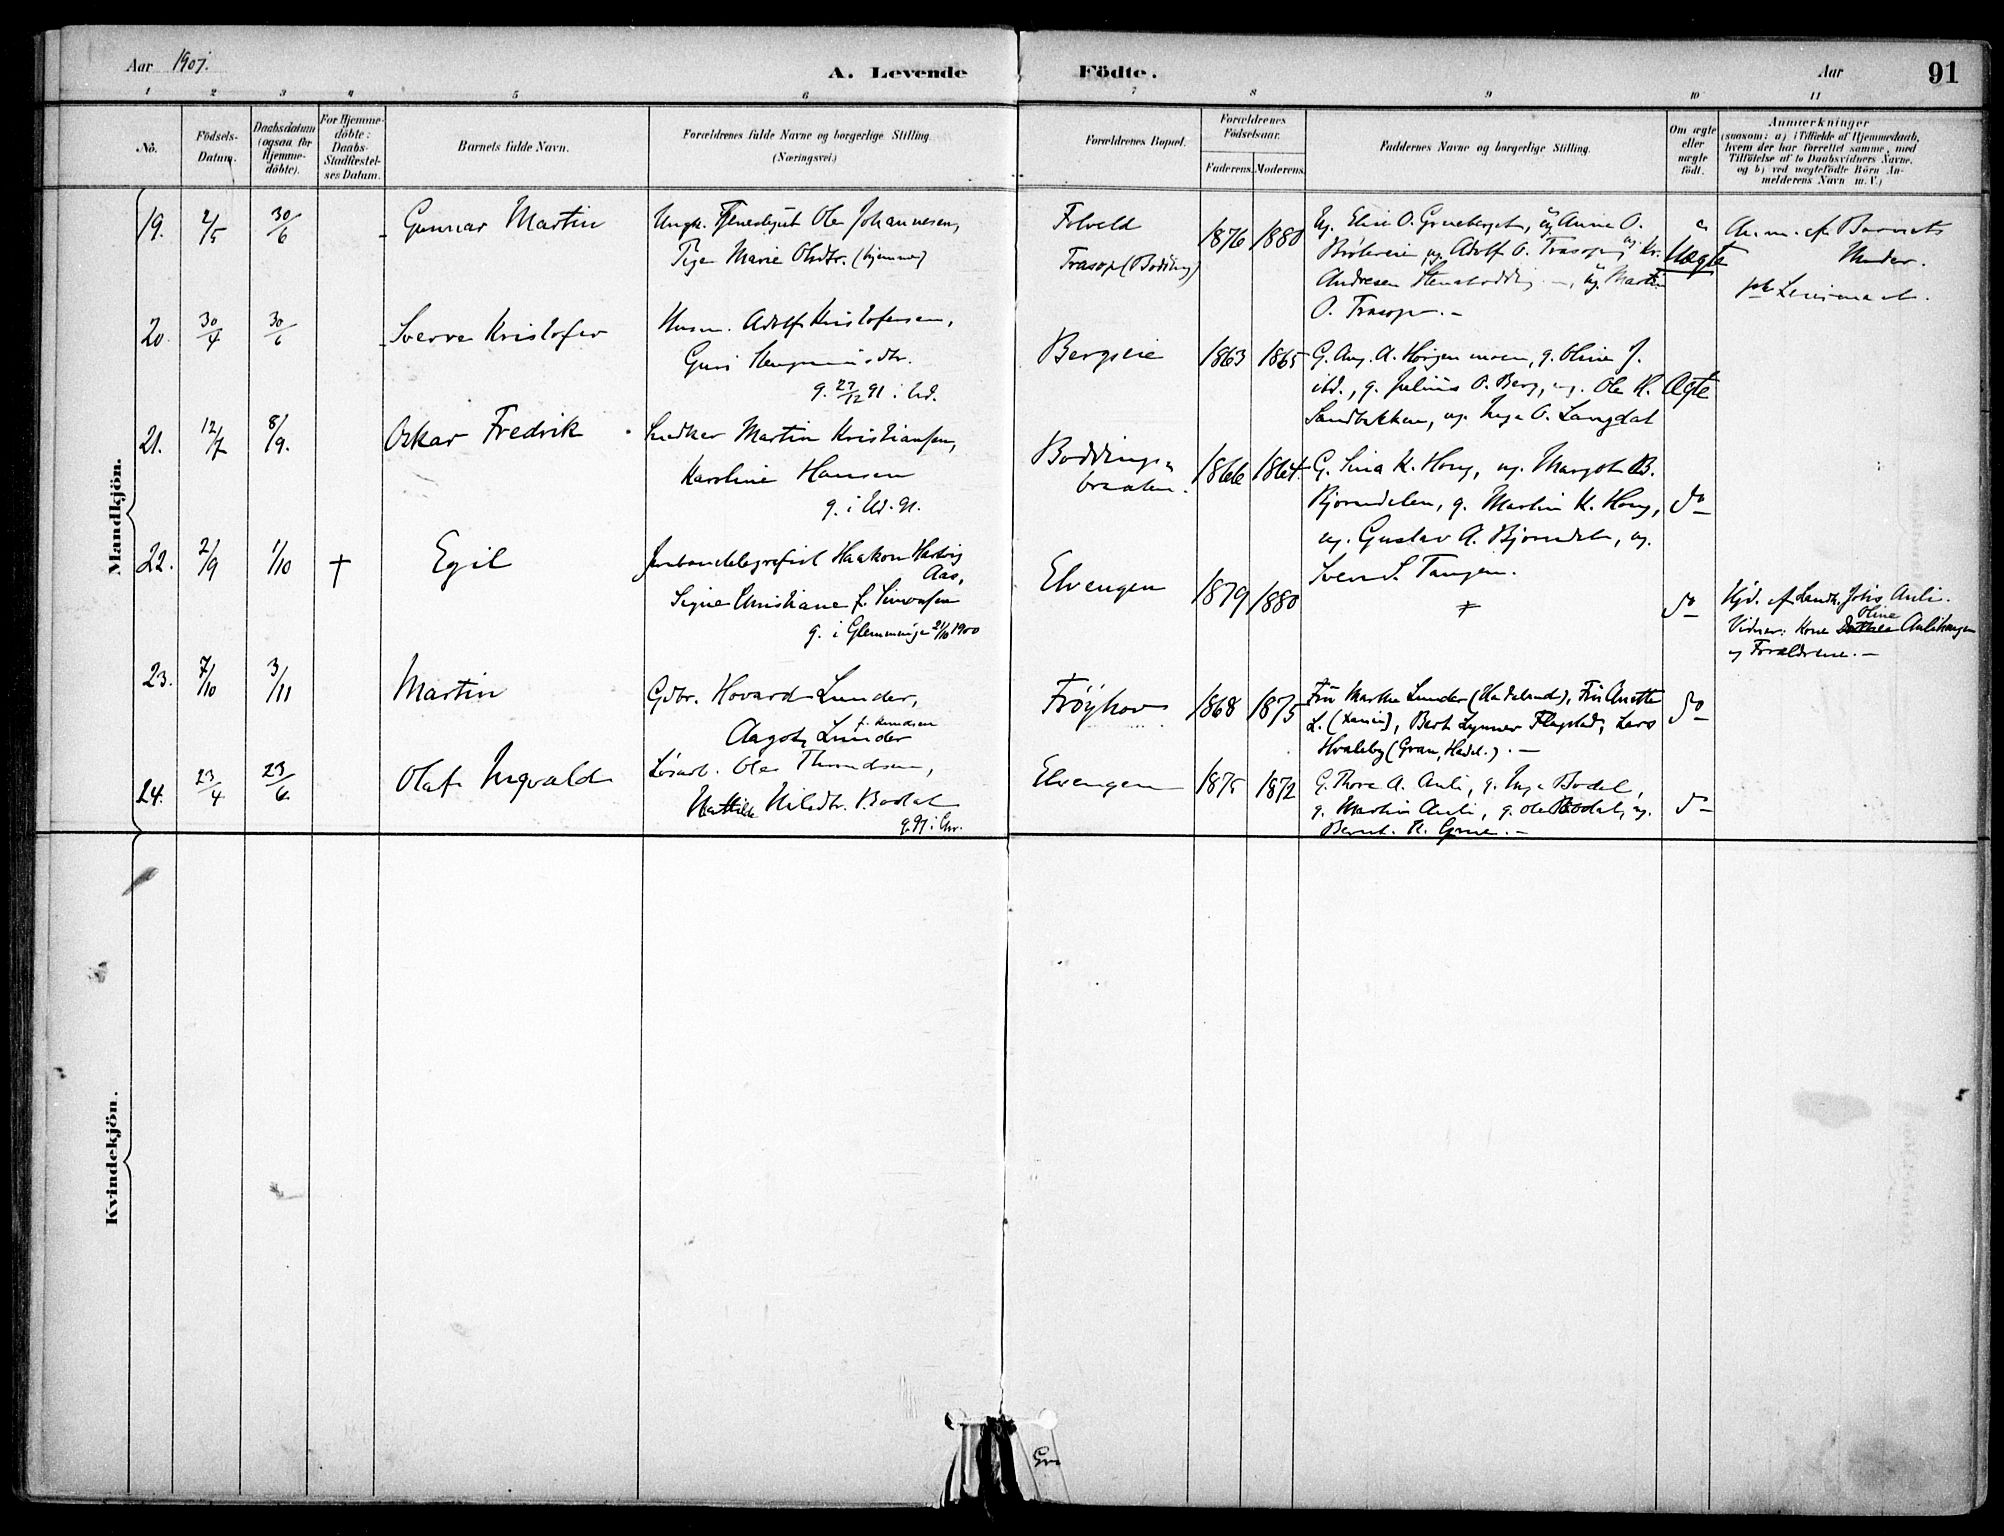 Aar 1907.
A. Levende Födte.
Aar
91
1 2 3 4 5 6 7 8 9 10 11
Nô.
Födsels-Datum.
Daabsdatum (ogsaa for Hjemmedöbte).
For Hjemmedöbte: Daabs-Stadfæstelses Datum.
Barnets fulde Navn.
Forældrenes fulde Navne og borgerlige Stilling. (Næringsvei.)
Forældrenes Bopæl.
Forældrenes Födselsaar.
Faderens. Moderens.
Faddernes Navne og borgerlige Stilling.
Om ægte eller uægte födt.
Anmærkninger
(saasom: a) i Tilfælde af Hjemmedaab, hvem der har forrettet samme, med Tilföielse af to Daabsvidners Navne, og b) ved uægtefödte Börn Anmelderens Navn m. V.)
Mandkjön.
19. 2/5 30/6 Gunnar Martin
Ungk. Tjenestegut Ole Johannesen,
Pige Marie Olsdtr. (hjemme)
Folveld
Trasop (Bodding)
1876 1880
Ug. Elise O. Greneberget, ug. Anne O.
ug. Adolf O. Trasop, ug. Kr.
Andresen, ug. Martin
O. Trasop. -
Uægte
Anm. af Barnets
Moder.
20. 30/4 30/6 Sverre Kristofer
Husm. Adolf Kristofersen,
Guri
g. 27/12 91 i Ud.
Bergseie
1863 1865
G. Aug. A. Horgenmoen, g. Oline J.
ibd., g. Julius O. Berg, ug. Ole K.
Sandbakken, ug. Inga O. Langdal
Ægte
21. 12/7 8/9. Oskar Fredrik
Snedker Martin Kristiansen,
Karoline Hansen
g. i Ud. 91.
Boddings-
braaten.
1866 1864.
G. Lina K. Hong, ug. Margot B.
Bjorndalen, g. Martin K. Hong,
ug. Gustav A. Bjorndal, ug.
Sven S. Tangen.
do
22. 2/9 1/10 † Egil
Jernbanetelegrafist Haakon Hartvig
Aas,
Signe Christiane f. Simonsen
g. i Glemminge 21/10 1900
Elvengen
1879 1880
do
Hjd. af Landh. Johs Auli.
Vidner: Kone Oline Aulihaugen
og Forældrene. -
23. 7/10 3/11 Martin
Gdbr. Hovard Lunder,
Aagot Lunder f. Knudsen
Frøyhov
1868 1875
Fru Marthe Lunder (Hadeland), Fru Anette
L. Flagstad, Lars
Hvaleby (Gran, Hadel.). -
do
24. 23/4 23/6. Olaf Ingvald
Løsarb. Ole Thomdsen,
Mathilde Nilsdtr. Bodal
g. 97 i Chr.
Elvengen
1875 1872
G. Thora A. Auli, g. Inga Bodal,
g. Martin Auli, g. Ole Bodal, ug.
Bernt. R. Grue. -
do
Kvindekjön.